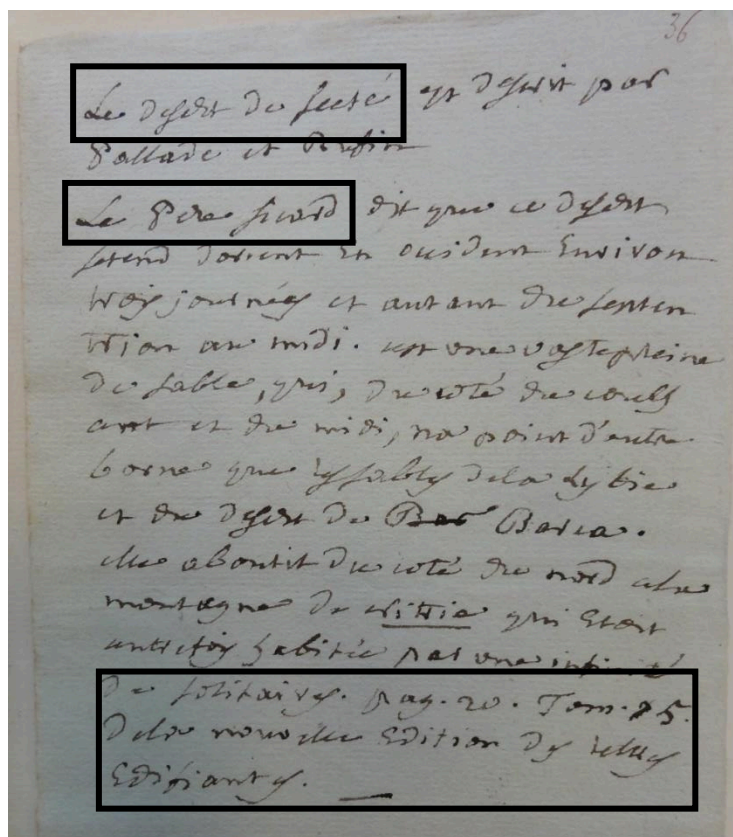 36
Le desert de sceté est descrit par
Pallade et Rufin
Le Pere sicard dit que ce desert
setend dorient en occident Environ
trois journées et autant du septen
trion au midi. est une vaste pleine
de sable, qui, du coté du couch
ant et du midi, na point d'autre
borne que les sables dela Lybie
et du desert de Barca.
elle aboutit du coté du nord a la
montagne de nitrie qui Etait
autrefois habitée par une infinité
de solitaires. pag. 20. Tom. 5.
dela nouvelle Edition des lettres
Edifiantes.